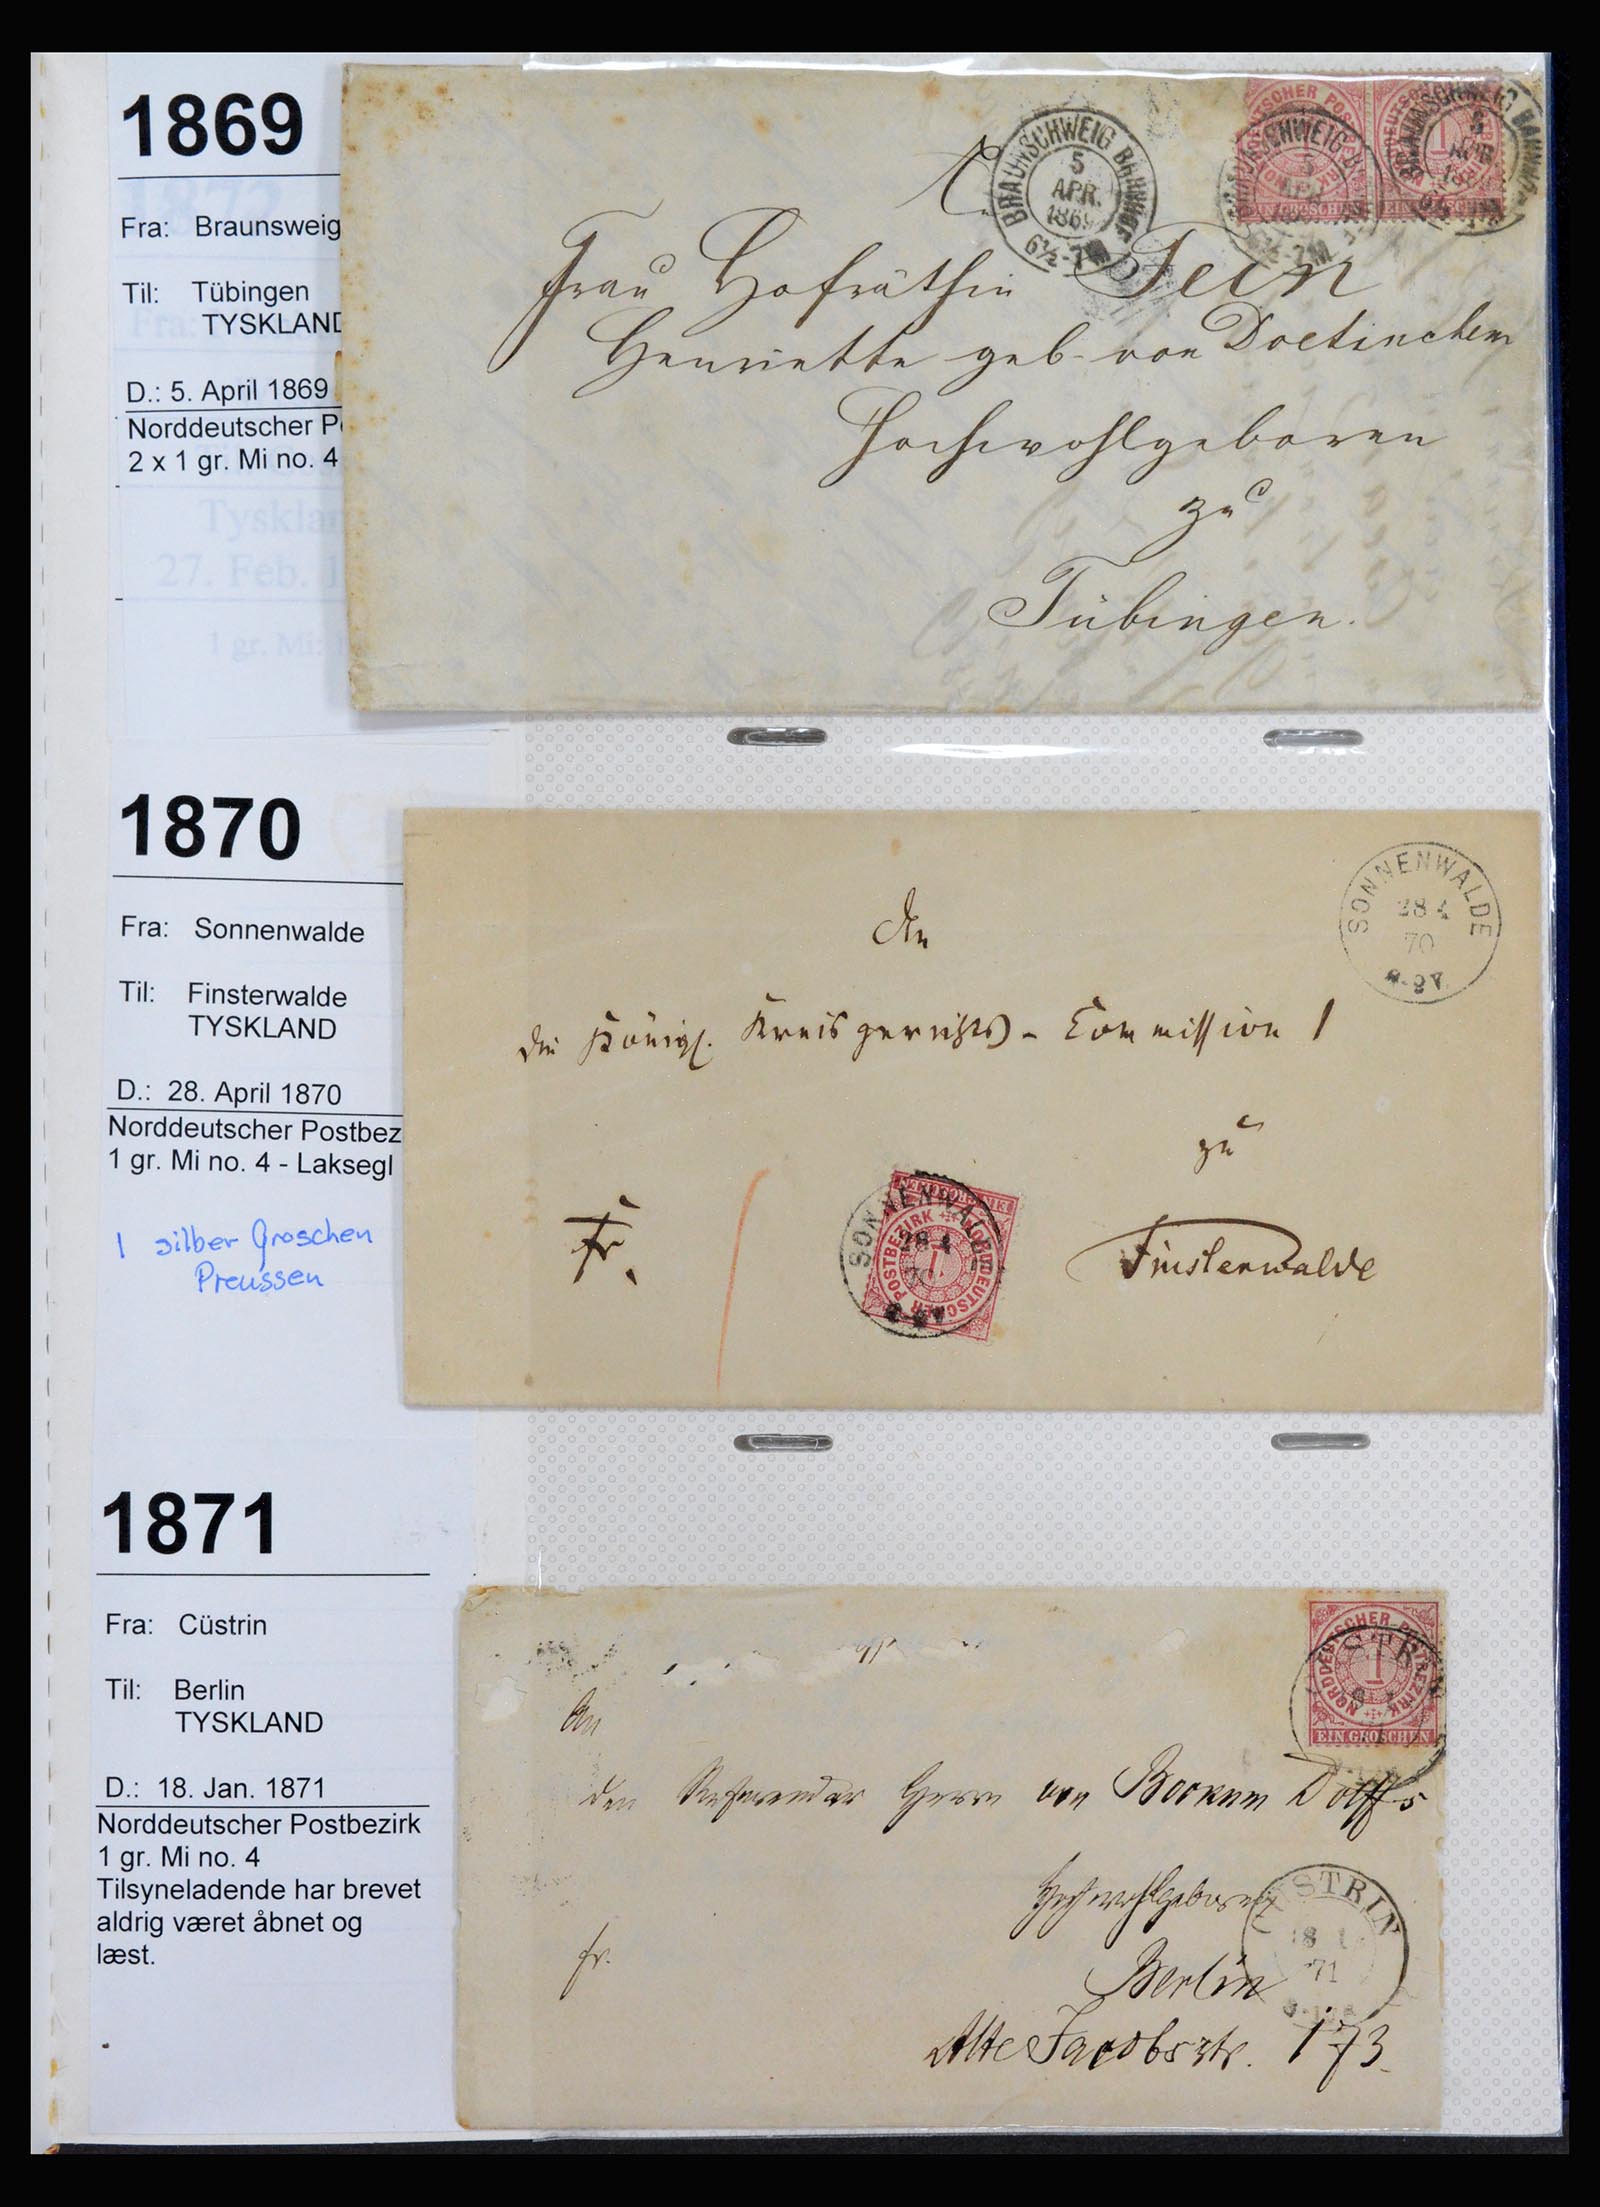 1869
Fra: Braunsweig
Til: Tübingen
TYSKLAND
D.: 5. April 1869
Norddeutscher P
2 x 1 gr. Mi no. 4
Tysklan
27. Feb. 1
1 gr. Mi:
BRAUNSCHWEIG BAHNHOF
5
APR.
1869
6½-7
NORDDEUTSCHER POSTBEZIRK
1
EIN GROSCHEN
Frau Hofräthin Fein
Henriette geb. von Doetinchem
Hochwohlgeboren
zu
Tübingen.
1870
Fra: Sonnenwalde
Til: Finsterwalde
TYSKLAND
D.: 28. April 1870
Norddeutscher Postbez
1 gr. Mi no. 4 - Laksegl
1 silber Groschen
Preussen
SONNENWALDE
28 4
70
An
die Königl. Kreisgerichts-Commission I
zu
Fr.
SONNENWALDE
28 4
70
NORDDEUTSCHER POSTBEZIRK
1
EIN GROSCHEN
Finsterwalde
1871
Fra: Cüstrin
Til: Berlin
TYSKLAND
D.: 18. Jan. 1871
Norddeutscher Postbezirk
1 gr. Mi no. 4
Tilsyneladende har brevet
aldrig været åbnet og
læst.
NORDDEUTSCHER POSTBEZIRK
1
EIN GROSCHEN
An
den Referendar Herrn von Bockum Dolffs
Hochwohlgeboren
CÜSTRIN
18 1
71
fr.
Berlin
Alte Jacobsstr. 173.